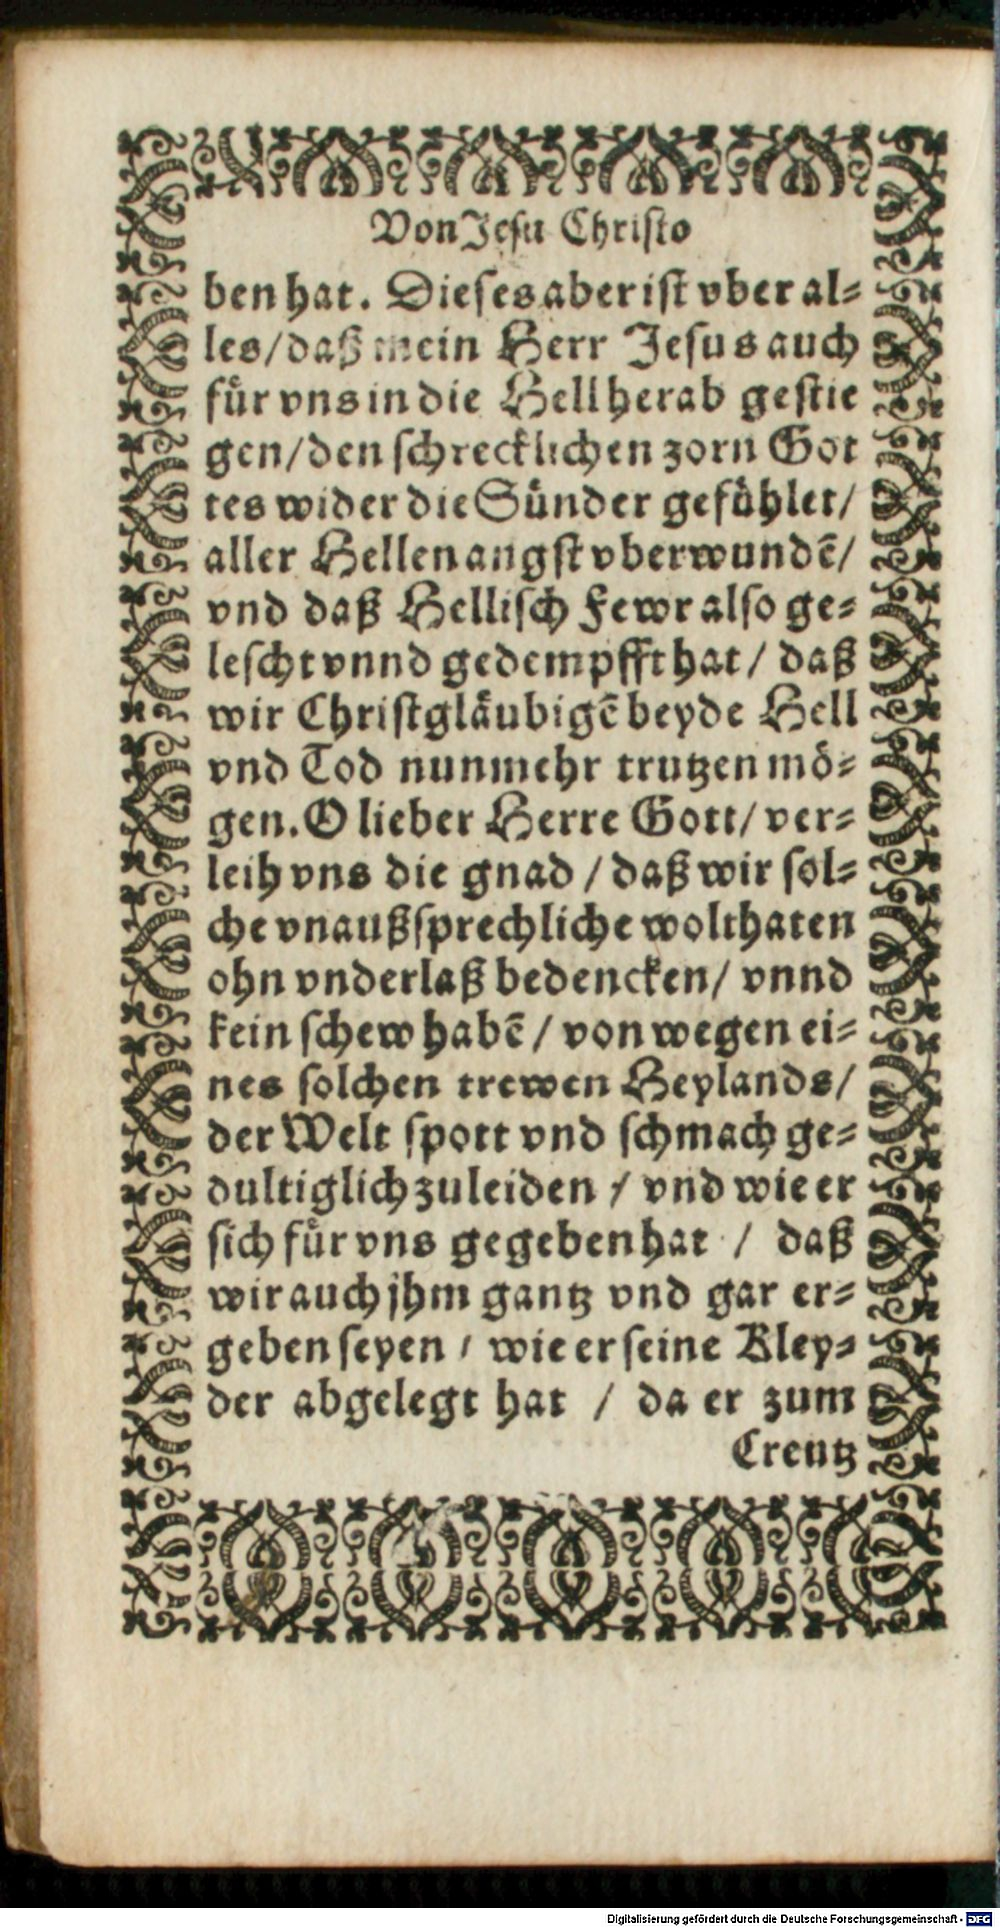 Von Jesu Christo
ben hat. Dieses aber ist vber al-
les/ daß mein Herr Jesus auch
für vns in die Hell herab gestie
gen/ den schrecklichen zorn Got
tes wider die Sünder gefühlet/
aller Hellen angst vberwundē/
vnd daß Hellisch Fewr also ge-
lescht vnnd gedempfft hat/ daß
wir Christgläubigē beyde Hell
vnd Tod nunmehr trutzen mö-
gen. O lieber Herre Gott/ ver-
leih vns die gnad / daß wir sol-
che vnaußsprechliche wolthaten
ohn vnderlaß bedencken/ vnnd
kein schew habē / von wegen ei-
nes solchen trewen Heylands/
der Welt spott vnd schmach ge-
dultiglich zuleiden / vnd wie er
sich für vns gegeben hat / daß
wir auch jhm gantz vnd gar er-
geben seyen / wie er seine Kley-
der abgelegt hat / da er zum
Creutz
Digitalisierung gefördert durch die Deutsche Forschungsgemeinschaft - DFG